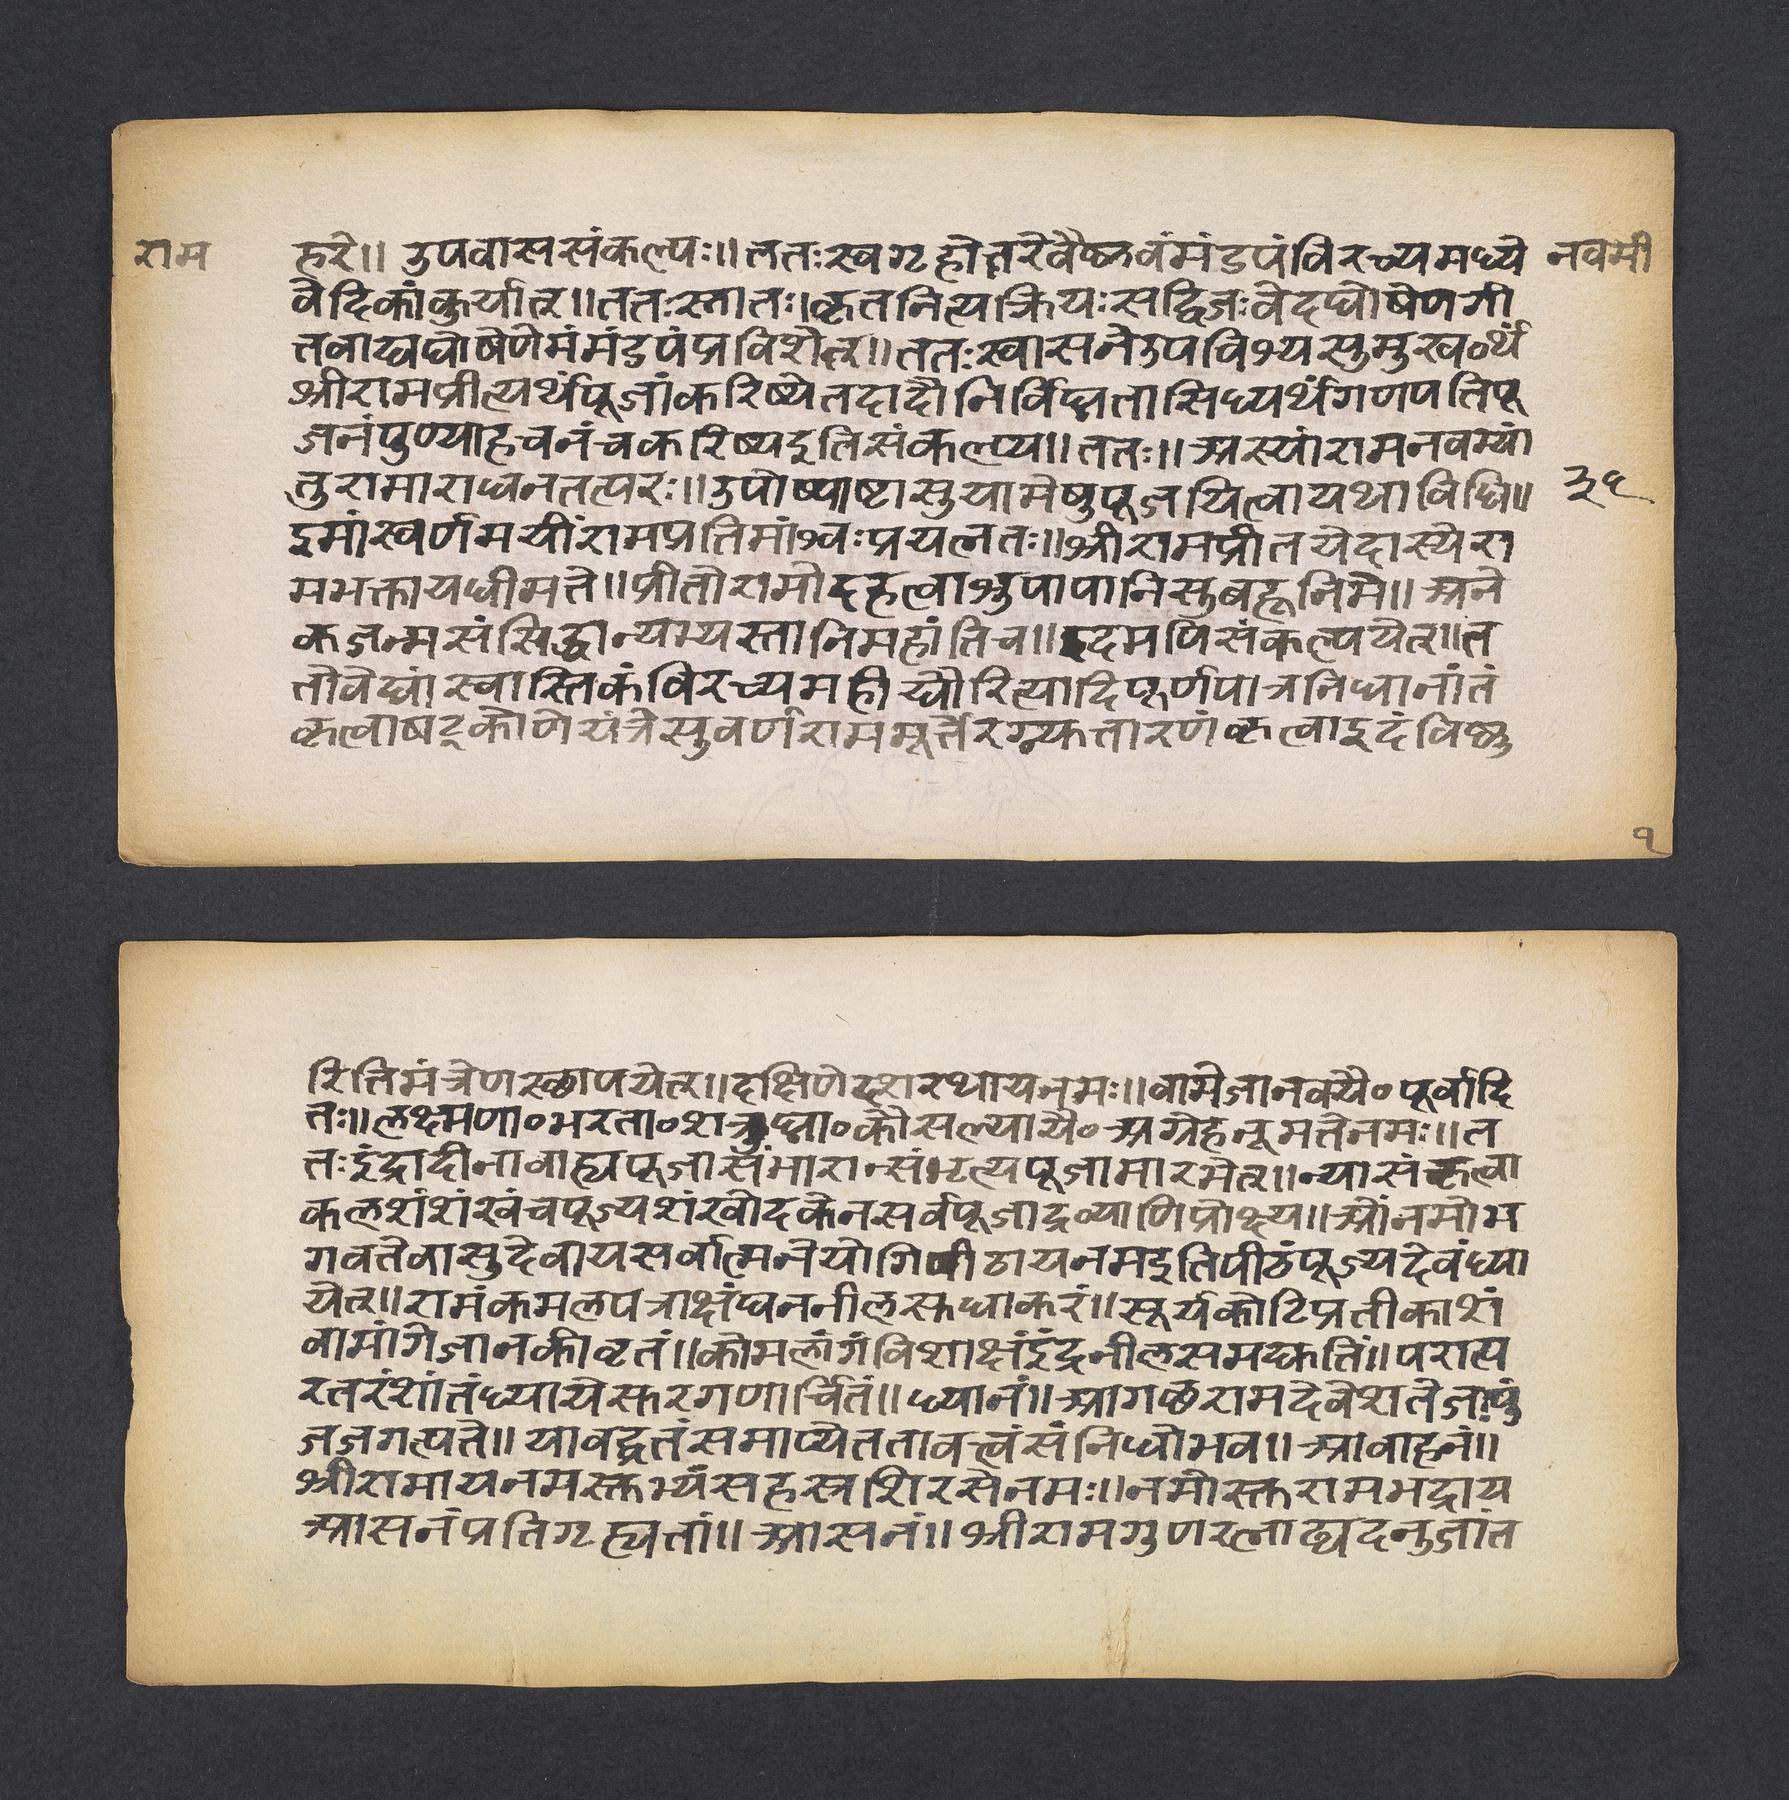 राम
हरे॥ उपवाससंकल्पः॥ततःस्वगृहोत्तरेवैष्णवंमंडपंविरच्यमध्ये
नवमी
वेदिकांकुर्यात्॥ततःस्नातः।कृतनित्यक्रियःसद्विजःवेदघोषेणगी
तवाद्यघोषेणेमंमंडपंप्रविशेत्॥ततःस्वासनेउपविश्यसुमुख॰र्थं
श्रीरामप्रीत्यर्थंपूजांकरिष्येतदादौनिर्विघ्नतासिध्यर्थंगणपतिपू
जनंपुण्याहवनंचकरिष्यइतिसंकल्प्य॥ततः॥अस्यांरामनवम्यां
तुरामाराधनतत्परः॥उपोष्याष्टासुयामेषुपूजयित्वायथाविधि॥
३१
इमांस्वर्णमयींरामप्रतिमांश्वःप्रयत्नतः॥श्रीरामप्रीतयेदास्येरा
मभक्तायधीमते॥प्रीतोरामोदहत्वाशुपापानिसुबहूनिमे॥अने
कजन्मसंसिद्धान्यभ्यस्तानिमहांतिच॥इदमपिसंकल्पयेत्॥त
तोवेद्यांस्वास्तिकंविरच्यमहीद्यौरित्यादिपूर्णपात्रनिधानांतं
कृत्वाषट्कोणेयंत्रेसुवर्णराममूर्त्तेरग्न्युत्तारणंकृत्वाइदंविष्णु
१
रितिमंत्रेणस्छापयेत्॥दक्षिणेदशरथायनमः॥वामेजानक्यै॰पूर्वादि
तः॥लक्ष्मणा॰भरता॰शत्रुघ्ना॰कौसल्यायै॰अग्रेहनूमतेनमः॥त
तःइंद्रादीनावाह्यपूजासंभारान्संभृत्यपूजामारभेत्॥न्यासंकृत्वा
कलशंशंखंचपूज्यशंखोदकेनसर्वपूजाद्रव्याणिप्रोक्ष्य॥ओंनमोभ
गवतेवासुदेवायसर्वात्मनेयोगिपीठायनमइतिपीठंपूज्यदेवंध्या
येत्॥रामंकमलपत्राक्षंघननीलसुधाकरं॥सूर्यकोटिप्रतीकाशं
वामांगेजानकीवृतं॥कोमलांगंविशाक्षंइंद्रनीलसमद्युतिं॥परात्प
रतरंशांतंध्यायेसुरगणार्चितं॥ध्यानं॥आगच्छरामदेवेशतेजःपुं
जजगत्पते॥यावद्व्रतंसमाप्येततावत्त्वंसंनिधौभव॥आवाहनं॥
श्रीरामायनमस्तुभ्यंसहस्रशिरसेनमः॥नमोस्तुरामभद्राय
आसनंप्रतिगृह्यतां॥आसनं॥श्रीरामगुणरत्नाढ्यदनुजांत